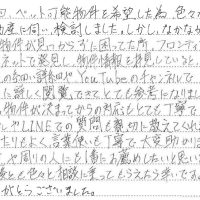 回、ペット可能物件を希望した為、色々な
動産に伺い、検討しました。しかし、なかなか
物件が見つからずに困ってた所、フロンティ
ネットで発見し、物件情報を拝見していると、
の詳細や YouTube のチャンネルで、
に詳しく閲覧できてとても参考になりまし
物件が決まってからの対応もとても丁寧で
ルやLINEでの質問も親切に教えてくれ
たりもよく言葉使いも丁寧で大変助かりま
や周りの人にも1番にお薦めしたいと思いま
後とも色々と相談に乗ってもらえたら幸いです。
がとうございました。